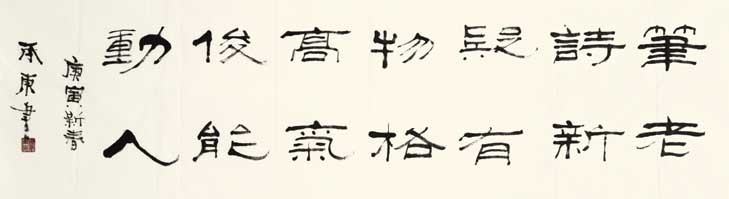 筆老
詩新
疑有
物格
高氣
俊能
動人
庚寅新春
承東書